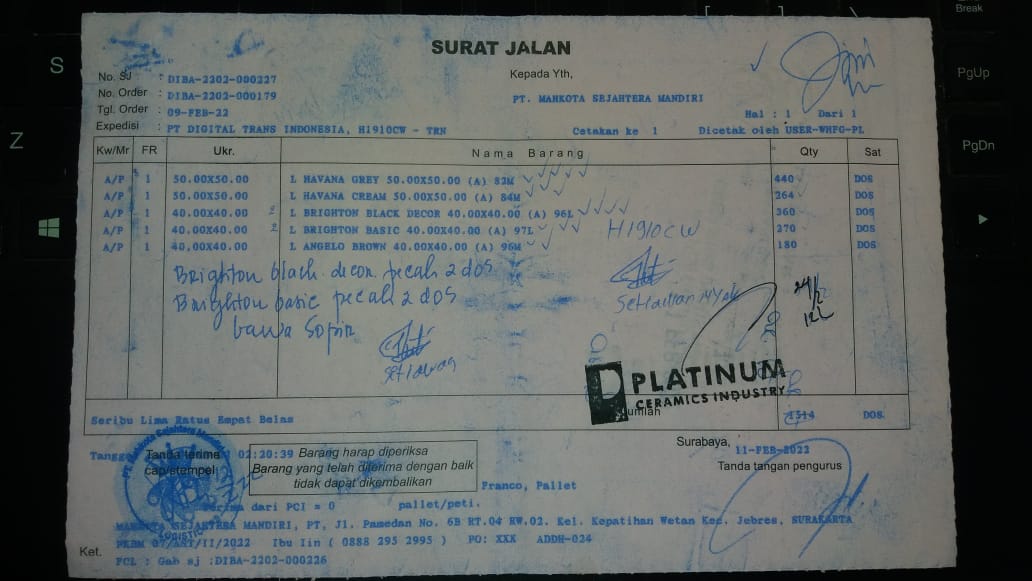 SURAT JALAN
No. SJ : DIBA-2202-000227
No. Order : DIBA-2202-000179
Tgl. Order : 09-FEB-22
Expedisi : PT DIGITAL TRANS INDONESIA, H1910CW - TRN
Kepada Yth,
PT. MAHKOTA SEJAHTERA MANDIRI
Hal : 1 Dari 1
Cetakan ke 1 Dicetak oleh USER-WHFG-PL
Kw/Mr FR Ukr. Nama Barang Qty Sat
A/P 1 50.00X50.00 L HAVANA GREY 50.00X50.00 (A) 82M 440 DOS
A/P 1 50.00X50.00 L HAVANA CREAM 50.00X50.00 (A) 84M 264 DOS
A/P 1 40.00X40.00 2 L BRIGHTON BLACK DECOR 40.00X40.00 (A) 96L 360 DOS
A/P 1 40.00X40.00 2 L BRIGHTON BASIC 40.00X40.00 (A) 97L 270 DOS
A/P 1 40.00X40.00 L ANGELO BROWN 40.00X40.00 (A) 96M 180 DOS
H1910CW
Brighton black decor pecah 2 dos
Brighton basic pecah 2 dos
bawa Sopir
Setiawan
PLATINUM
CERAMICS INDUSTRY
Jumlah 1514 DOS
Seribu Lima Ratus Empat Belas
PT. Mahkota Sejahtera Mandiri
LOGISTIC
Tanda terima
cap/stempel
02:20:39
Barang harap diperiksa
Barang yang telah diterima dengan baik
tidak dapat dikembalikan
Surabaya, 11-FEB-2022
Tanda tangan pengurus
Franco, Pallet
dari PCI = 0 pallet/peti.
MAHKOTA SEJAHTERA MANDIRI, PT, Jl. Pamedan No. 6B RT.04 RW.02. Kel. Kepatihan Wetan Kec. Jebres, SURAKARTA
Ibu Iin ( 0888 295 2995 ) PO: XXX ADDH-024
Ket.
PCL : Gab sj :DIBA-2202-000226